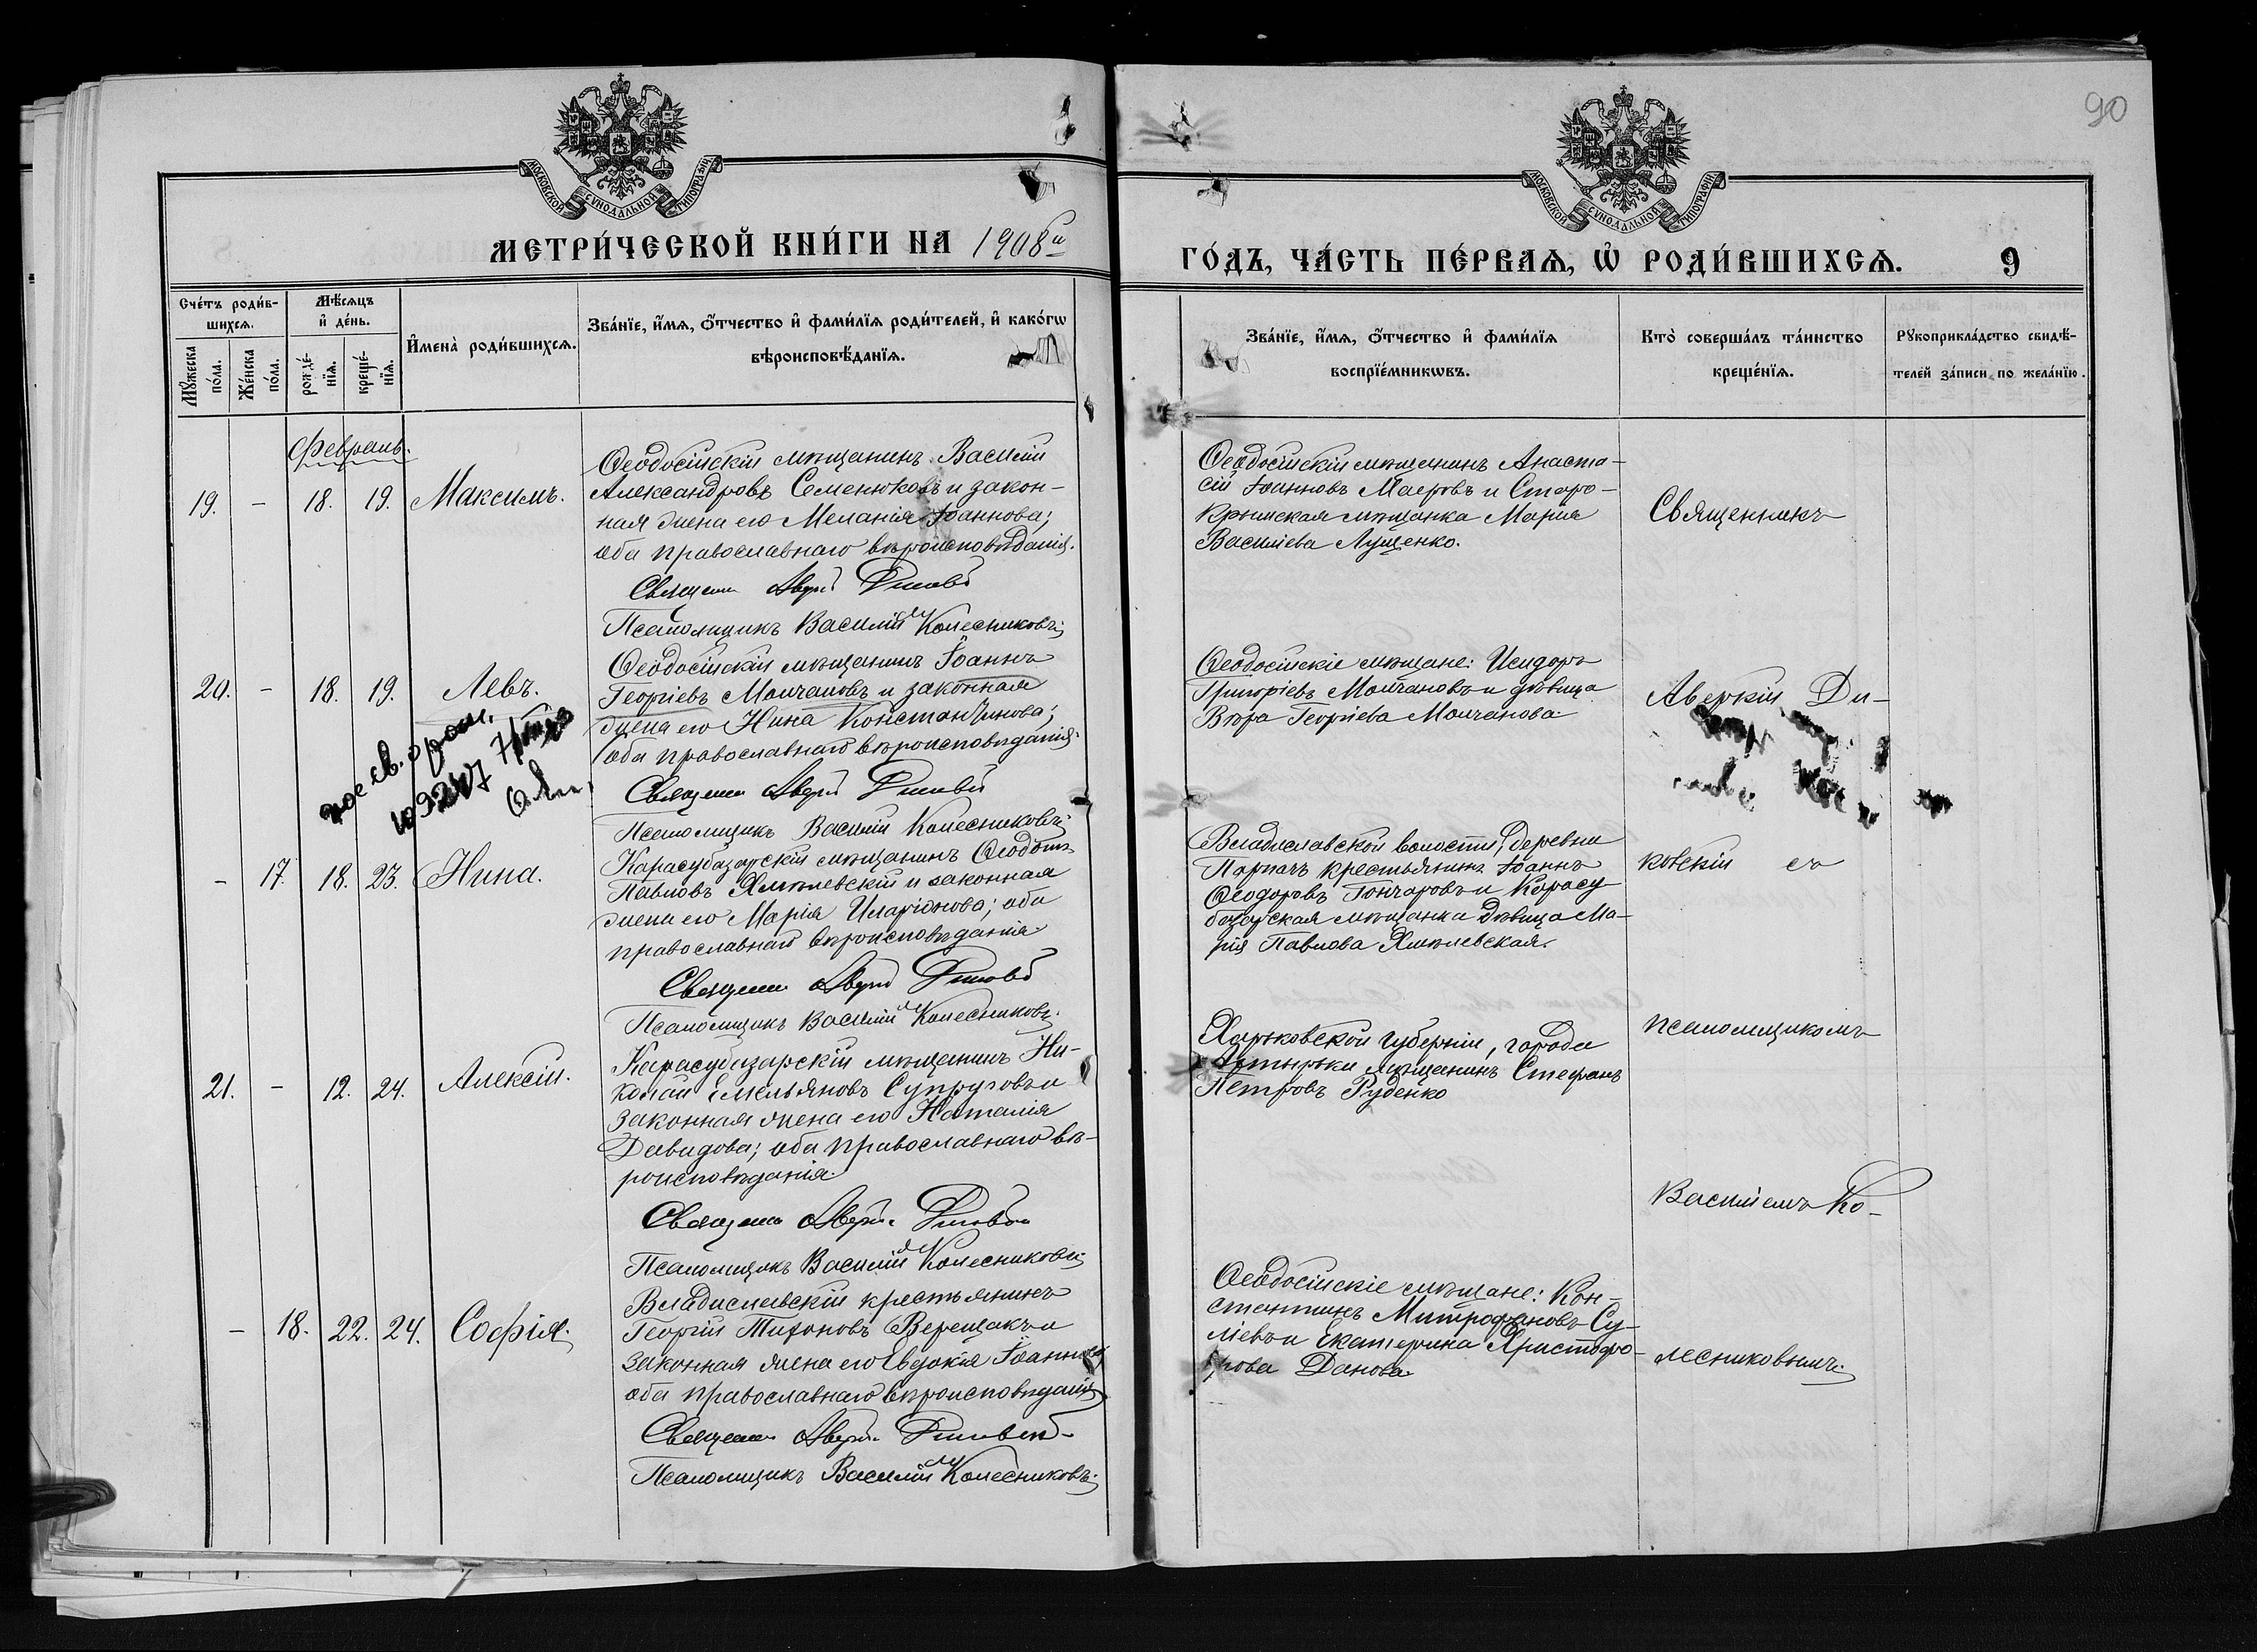 90
МОСКОВСКОЙ СѴНОДАЛЬНОЙ ТИПОГРАФІИ
МОСКОВСКОЙ СѴНОДАЛЬНОЙ ТИПОГРАФІИ
МЕТРИ́ЧЕСКОЙ КНИ́ГИ НА 1908й
ГО́ДЪ, ЧА́СТЬ ПЕ́РВАѦ, Ѡ҆ РОДИ́ВШИХСѦ. 9
Сче́тъ роди́в-
шихсѧ.
Мꙋ́жеска по́ла.
Же́нска по́ла.
Мѣ́сѧцъ
и҆ де́нь.
рожде́-
нїѧ.
креще́-
нїѧ.
И҆мена̀ роди́вшихсѧ.
Зва́нїе, и҆́мѧ, ѻ҆́тчество и҆ фами́лїѧ роди́телей, и҆ како́гѡ
вѣроисповѣ́данїѧ.
Зва́нїе, и҆́мѧ, ѻ҆́тчество и҆ фами́лїѧ
воспрїе́мникѡвъ.
Кто̀ соверша́лъ та́инство
креще́нїѧ.
Рꙋкоприкла́дство свидѣ́-
телей за́писи по жела́нїю.
Февраль.
19. - 18. 19. Максимъ.
Ѳеодосійскій мѣщанинъ Василій
Александровъ Семенюковъ и закон-
ная жена его Меланія Іоаннова;
оба православнаго вѣроисповѣданія.
Священ
Псаломщикъ Василій Колесниковъ
Ѳеодосійскій мѣщанинъ Анаста-
сій Іоанновъ Маеровъ и Старо-
крымская мѣщанка Марія
Василіева Лущенко.
20. - 18. 19. Левъ.
Ѳеодосійскій мѣщанинъ Іоаннъ
Георгіевъ Молчановъ и законная
жена его Нина Константинова;
оба православнаго вѣроисповѣданія.
Священ
Псаломщикъ Василій Колесниковъ
Ѳеодосійскіе мѣщане: Исидоръ
Григоріевъ Молчановъ и дѣвица
Вѣра Георгіева Молчанова.
- 17. 18. 23. Нина.
Карасубазарскій мѣщанинъ Ѳеодотъ
Павловъ Хмѣлевскій и законная
жена его Марія Иларіонова; оба
православнаго вѣроисповѣданія
Священ
Псаломщикъ Василій Колесниковъ.
Владиславской волости, деревни
Парпачъ крестьянинъ Іоаннъ
Ѳеодоровъ Гончаровъ и Карасу-
базарская мѣщанка дѣвица Ма-
рія Павлова Хмѣлевская.
21. - 12. 24. Алексій.
Карасубазарскій мѣщанинъ Ни-
колай Емельяновъ Супруговъ и
законная жена его Наталія
Давидова; оба православнаго вѣ-
роисповѣданія.
Священ
Псаломщикъ Василій Колесниковъ
Харьковской губерніи, города
Ахтырки мѣщанинъ Стефанъ
Петровъ Руденко
- 18. 22. 24. Софія.
Владиславскій крестьянинъ
Георгій Тихоновъ Верещакъ и
законная жена его Евдокія Іоаннова
оба православнаго вѣроисповѣданія
Священ
Псаломщикъ Василій Колесниковъ.
Ѳеодосійскіе мѣщане: Кон-
стантинъ Митрофановъ Су-
ліевъ и Екатерина Христофо-
рова Данова
Священникъ
Аверкій Ди-
ковскій съ
псаломщикомъ
Василіемъ Ко-
лесниковымъ.